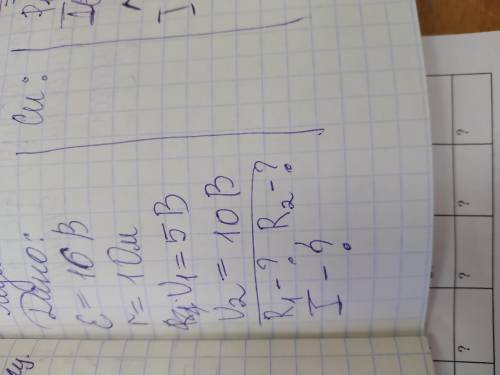 Дано:
ε = 16 В
r = 1 Ом
U₁ = 5 В
U₂ = 10 В
R₁ - ? R₂ - ?
I - ?
Си:
?
?
?
?